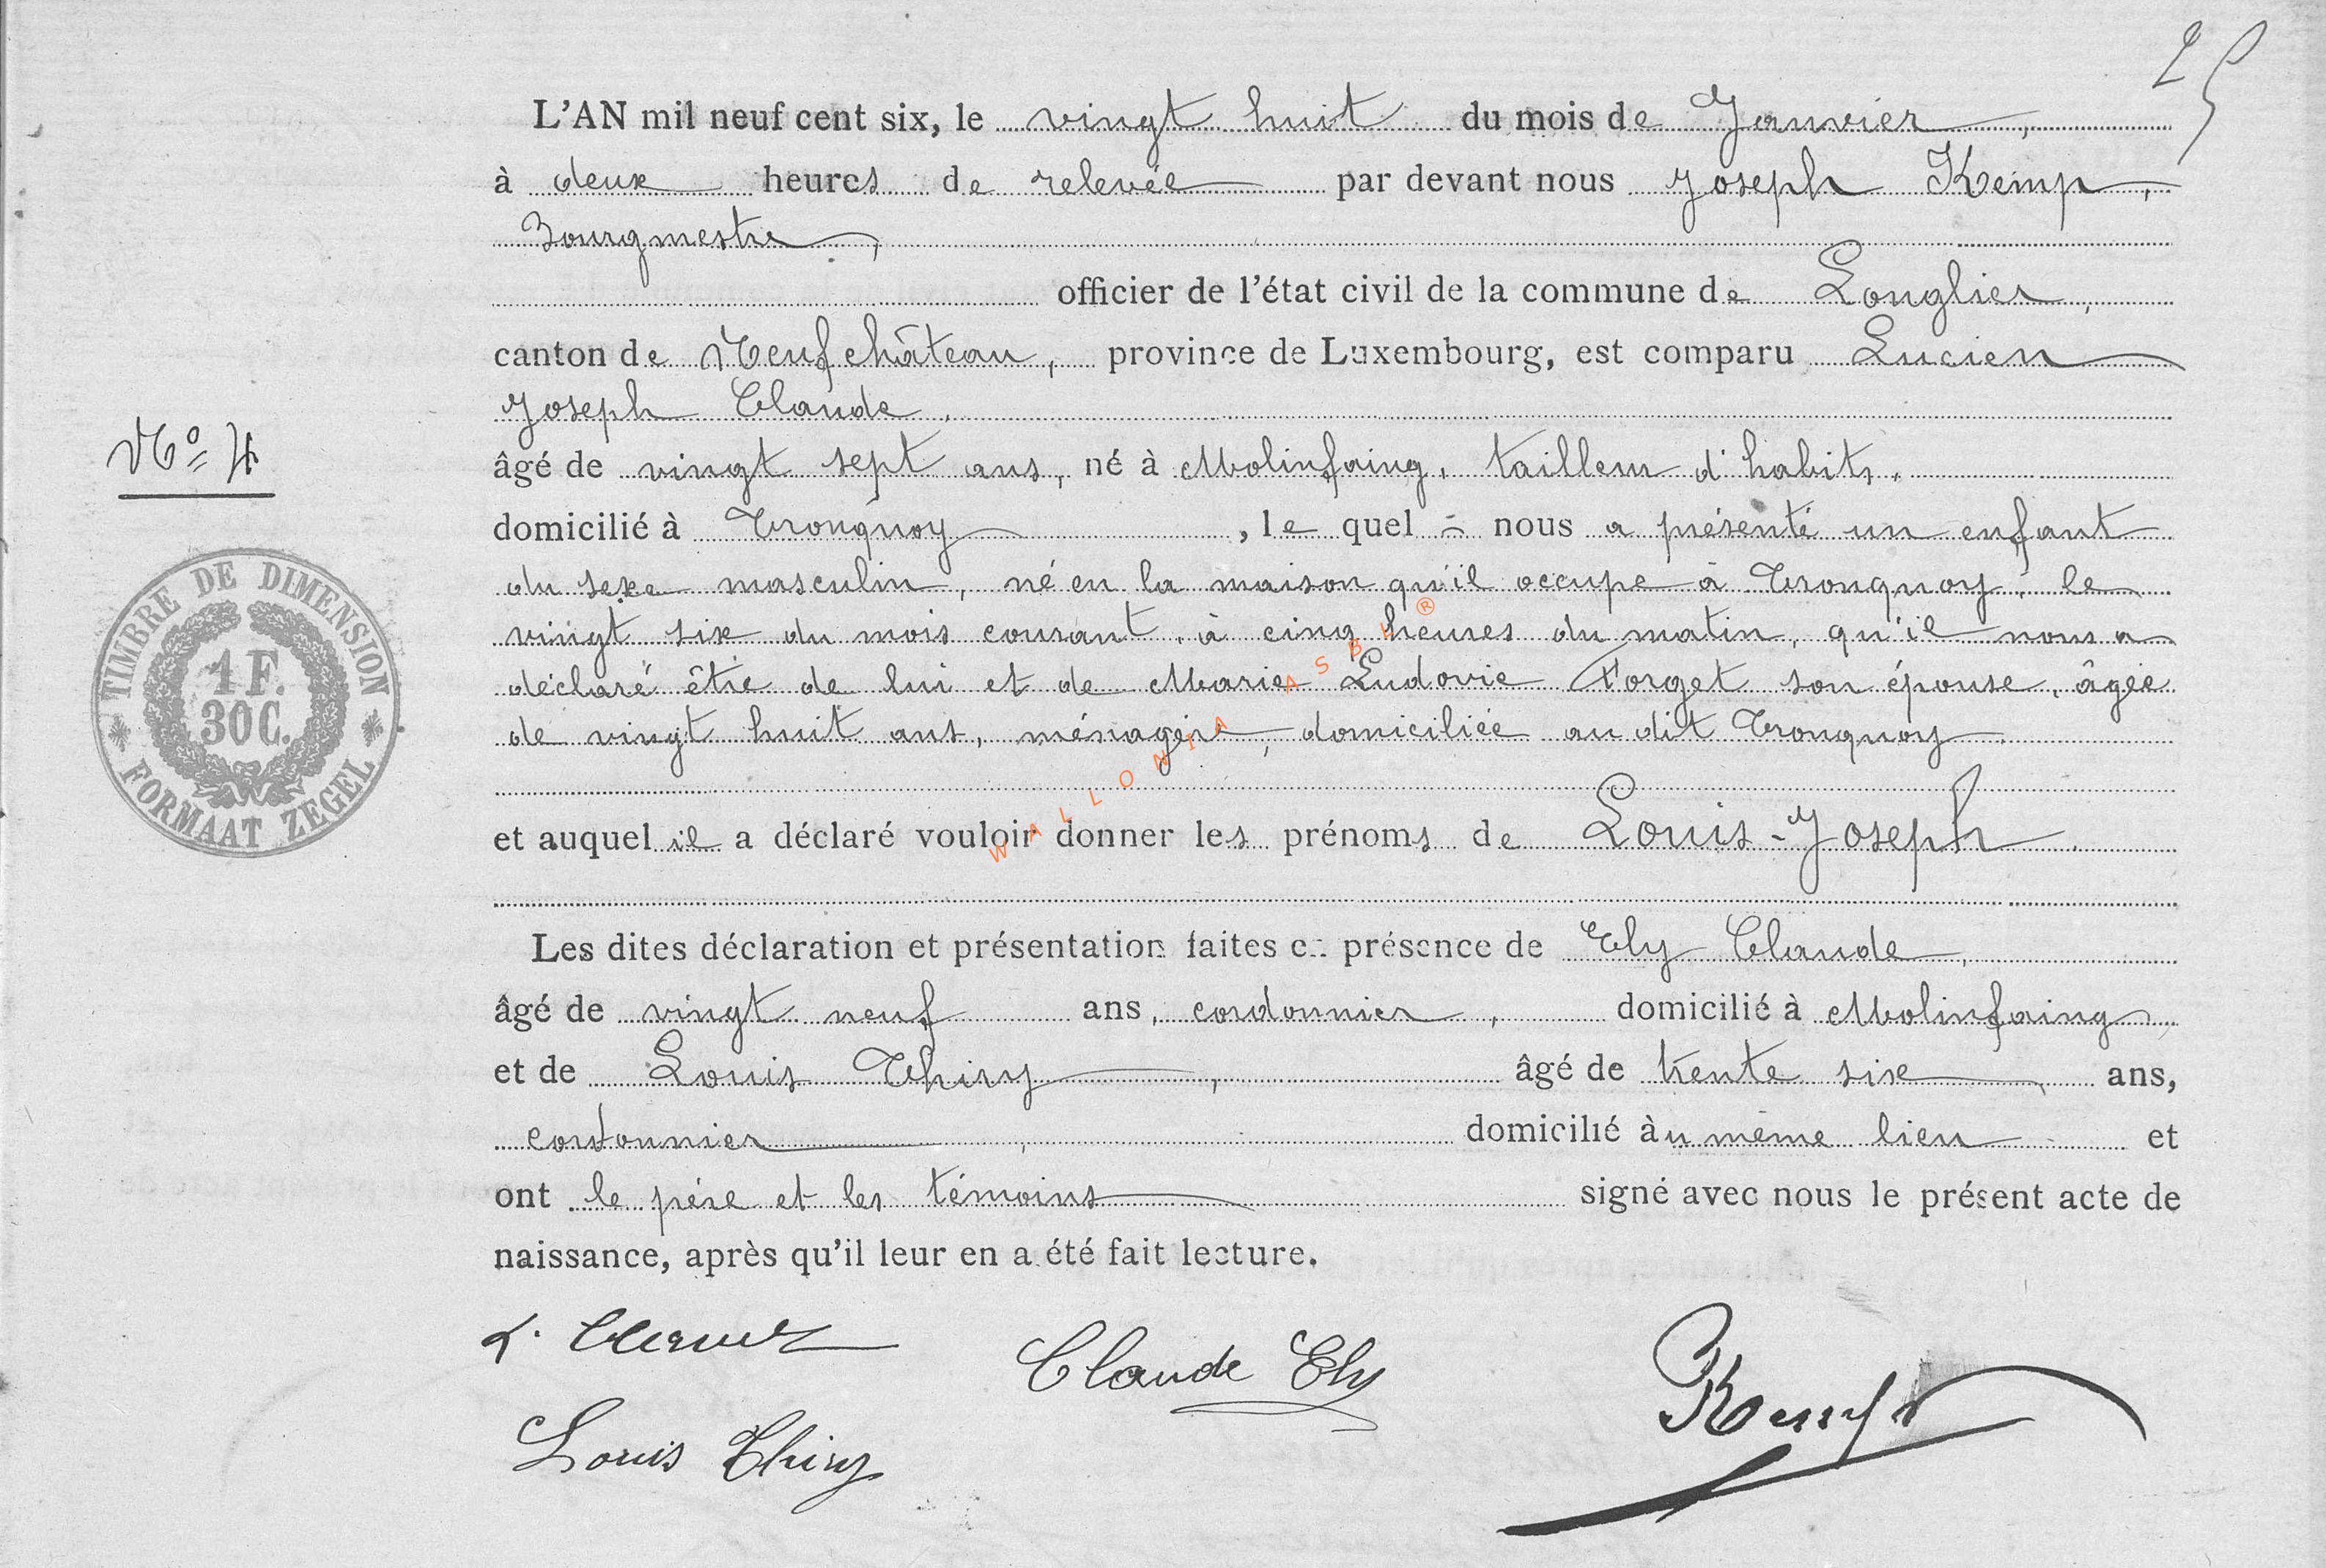 25
L'AN mil neuf cent six, le vingt huit du mois de Janvier,
à deux heures de relevée par devant nous Joseph Kemp,
Bourgmestre,
officier de l'état civil de la commune de Longlier,
canton de Neufchâteau, province de Luxembourg, est comparu Lucien
Joseph Claude,
Nº 4
âgé de vingt sept ans, né à Molinfaing, tailleur d'habits,
domicilié à Tronquoy, le quel - nous a présenté un enfant
du sexe masculin, né en la maison qu'il occupe à Tronquoy, le
vingt six du mois courant, à cinq heures du matin, qu'il nous a
déclaré être de lui et de Marie Ludovie Forget son épouse, âgée
de vingt huit ans, ménagère, domiciliée au dit Tronquoy.
TIMBRE DE DIMENSION
1 F.
30 C.
FORMAAT ZEGEL
WALLONIA ASBL ®
et auquel il a déclaré vouloir donner les prénoms de Louis-Joseph.
Les dites déclaration et présentation faites en présence de Ely Claude,
âgé de vingt neuf ans, cordonnier, domicilié à Molinfaing,
et de Louis Thiry, âgé de trente six, ans,
cordonnier, domicilié àu même lieu et
ont le père et les témoins signé avec nous le présent acte de
naissance, après qu'il leur en a été fait lecture.
L. Claude
Claude Ely
Kemp
Louis Thiry